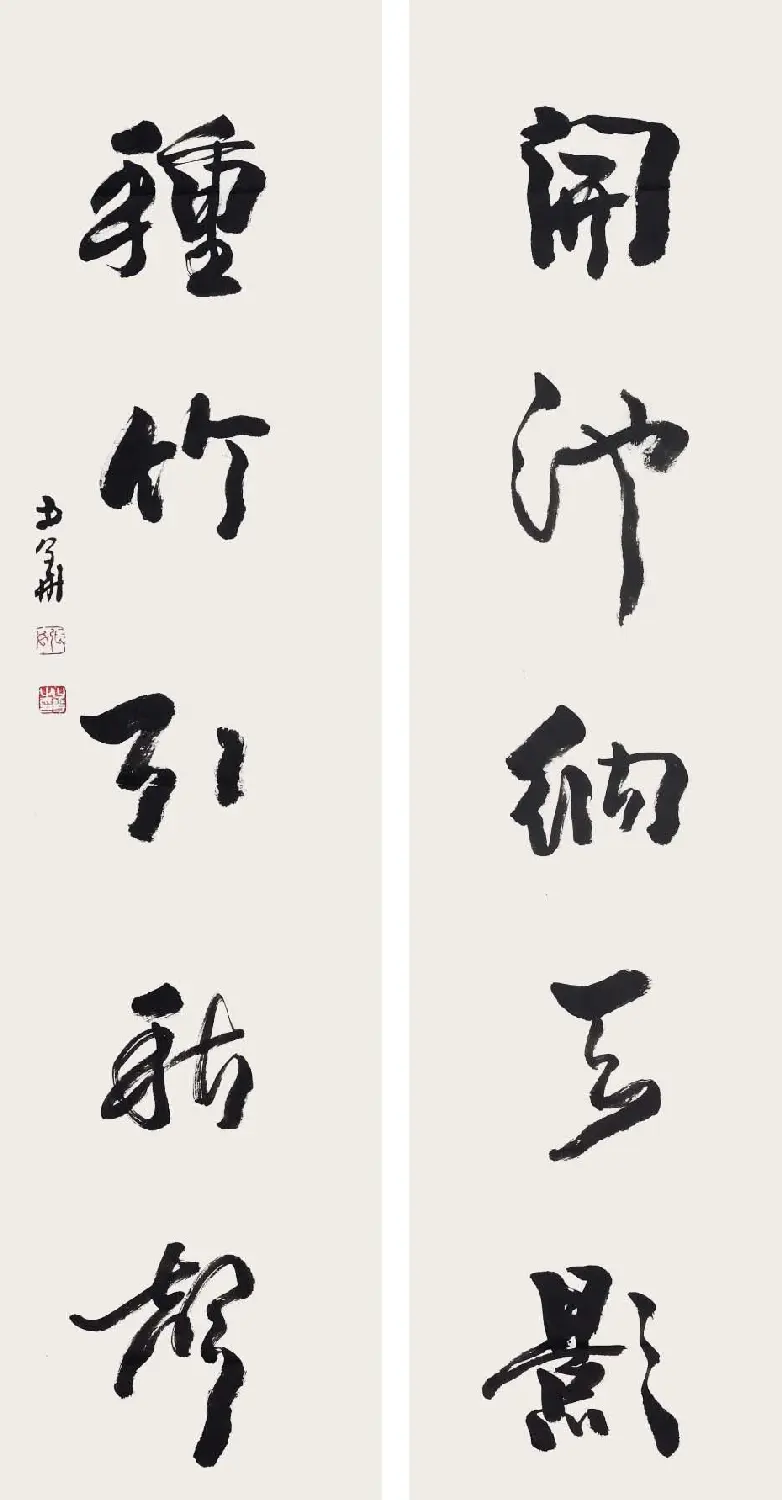 開池納天影
種竹引秋聲